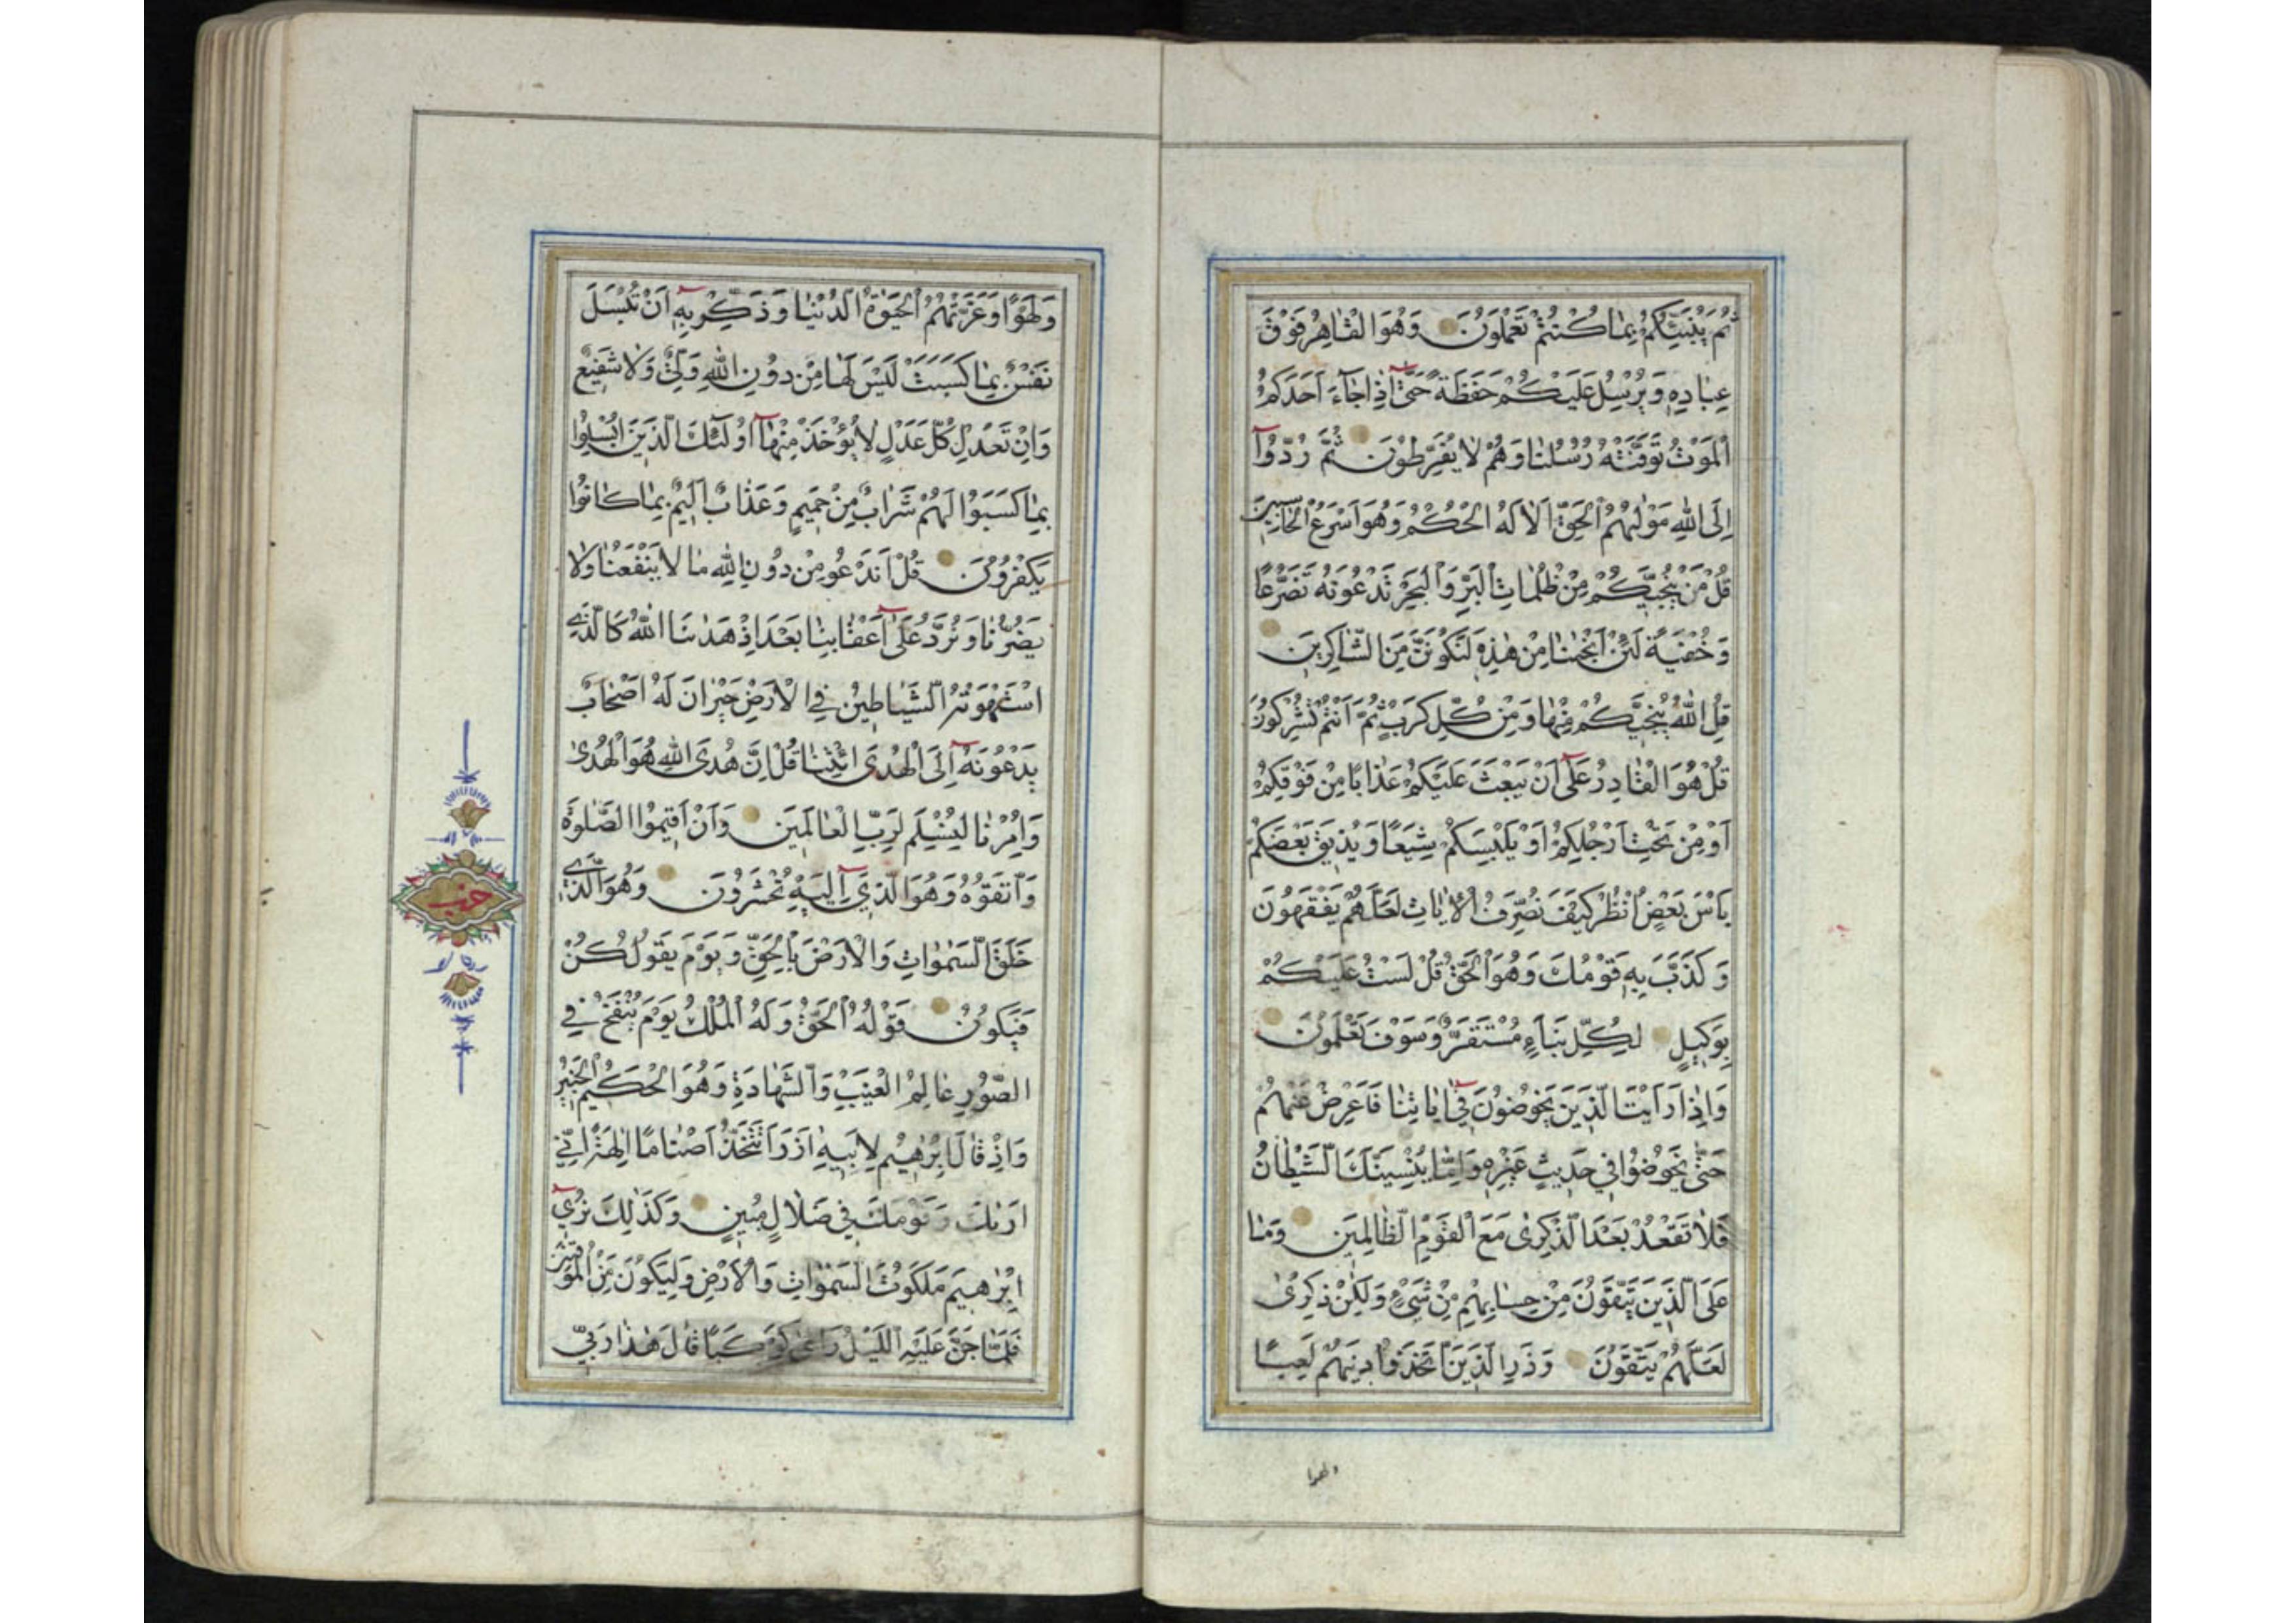 ثُمَّ يُنَبِّئُكُمْ بِمَا كُنْتُمْ تَعْمَلُونَ وَهُوَ الْقَاهِرُ فَوْقَ
عِبَادِهِ وَيُرْسِلُ عَلَيْكُمْ حَفَظَةً حَتَّى إِذَا جَاءَ أَحَدَكُمُ
الْمَوْتُ تَوَفَّتْهُ رُسُلُنَا وَهُمْ لَا يُفَرِّطُونَ ثُمَّ رُدُّوا
إِلَى اللهِ مَوْلٰيهُمُ الْحَقِّ أَلَا لَهُ الْحُكْمُ وَهُوَ أَسْرَعُ الْحَاسِبِينَ
قُلْ مَنْ يُنَجِّيكُمْ مِنْ ظُلُمَاتِ الْبَرِّ وَالْبَحْرِ تَدْعُونَهُ تَضَرُّعًا
وَخُفْيَةً لَئِنْ أَنْجٰنَا مِنْ هٰذِهِ لَنَكُونَنَّ مِنَ الشَّاكِرِينَ
قُلِ اللهُ يُنَجِّيكُمْ مِنْهَا وَمِنْ كُلِّ كَرْبٍ ثُمَّ أَنْتُمْ تُشْرِكُونَ
قُلْ هُوَ الْقَادِرُ عَلَى أَنْ يَبْعَثَ عَلَيْكُمْ عَذَابًا مِنْ فَوْقِكُمْ
أَوْ مِنْ تَحْتِ أَرْجُلِكُمْ أَوْ يَلْبِسَكُمْ شِيَعًا وَيُذِيقَ بَعْضَكُمْ
بَأْسَ بَعْضٍ انْظُرْ كَيْفَ نُصَرِّفُ الْاٰيَاتِ لَعَلَّهُمْ يَفْقَهُونَ
وَكَذَّبَ بِهِ قَوْمُكَ وَهُوَ الْحَقُّ قُلْ لَسْتُ عَلَيْكُمْ
بِوَكِيلٍ لِكُلِّ نَبَاءٍ مُسْتَقَرٌّ وَسَوْفَ تَعْلَمُونَ
وَإِذَا رَأَيْتَ الَّذِينَ يَخُوضُونَ فِي اٰيَاتِنَا فَأَعْرِضْ عَنْهُمْ
حَتّٰى يَخُوضُوا فِي حَدِيثٍ غَيْرِهِ وَإِمَّا يُنْسِيَنَّكَ الشَّيْطَانُ
فَلَا تَقْعُدْ بَعْدَ الذِّكْرٰى مَعَ الْقَوْمِ الظَّالِمِينَ وَمَا
عَلَى الَّذِينَ يَتَّقُونَ مِنْ حِسَابِهِمْ مِنْ شَيْءٍ وَلٰكِنْ ذِكْرٰى
لَعَلَّهُمْ يَتَّقُونَ وَذَرِ الَّذِينَ اتَّخَذُوا دِينَهُمْ لَعِبًا
ولهوا
وَلَهْوًا وَغَرَّتْهُمُ الْحَيٰوةُ الدُّنْيَا وَذَكِّرْ بِهِ أَنْ تُبْسَلَ
نَفْسٌ بِمَا كَسَبَتْ لَيْسَ لَهَا مِنْ دُونِ اللهِ وَلِيٌّ وَلَا شَفِيعٌ
وَإِنْ تَعْدِلْ كُلَّ عَدْلٍ لَا يُؤْخَذْ مِنْهَا أُولٰئِكَ الَّذِينَ أُبْسِلُوا
بِمَا كَسَبُوا لَهُمْ شَرَابٌ مِنْ حَمِيمٍ وَعَذَابٌ أَلِيمٌ بِمَا كَانُوا
يَكْفُرُونَ قُلْ أَنَدْعُو مِنْ دُونِ اللهِ مَا لَا يَنْفَعُنَا وَلَا
يَضُرُّنَا وَنُرَدُّ عَلَى أَعْقَابِنَا بَعْدَ إِذْ هَدٰنَا اللهُ كَالَّذِي
اسْتَهْوَتْهُ الشَّيَاطِينُ فِي الْأَرْضِ حَيْرَانَ لَهُ أَصْحَابٌ
يَدْعُونَهُ إِلَى الْهُدَى ائْتِنَا قُلْ إِنَّ هُدَى اللهِ هُوَ الْهُدٰى
وَأُمِرْنَا لِنُسْلِمَ لِرَبِّ الْعَالَمِينَ وَأَنْ أَقِيمُوا الصَّلٰوةَ
وَاتَّقُوهُ وَهُوَ الَّذِي إِلَيْهِ تُحْشَرُونَ وَهُوَ الَّذِي
خَلَقَ السَّمٰوَاتِ وَالْأَرْضَ بِالْحَقِّ وَيَوْمَ يَقُولُ كُنْ
فَيَكُونُ قَوْلُهُ الْحَقُّ وَلَهُ الْمُلْكُ يَوْمَ يُنْفَخُ فِي
الصُّورِ عَالِمُ الْغَيْبِ وَالشَّهَادَةِ وَهُوَ الْحَكِيمُ الْخَبِيرُ
وَإِذْ قَالَ إِبْرٰهِيمُ لِأَبِيهِ اٰزَرَ أَتَتَّخِذُ أَصْنَامًا اٰلِهَةً إِنِّي
أَرٰيكَ وَقَوْمَكَ فِي ضَلَالٍ مُبِينٍ وَكَذٰلِكَ نُرِي
إِبْرٰهِيمَ مَلَكُوتَ السَّمٰوَاتِ وَالْأَرْضِ وَلِيَكُونَ مِنَ الْمُوقِنِينَ
فَلَمَّا جَنَّ عَلَيْهِ اللَّيْلُ رَاٰى كَوْكَبًا قَالَ هٰذَا رَبِّي
حزب